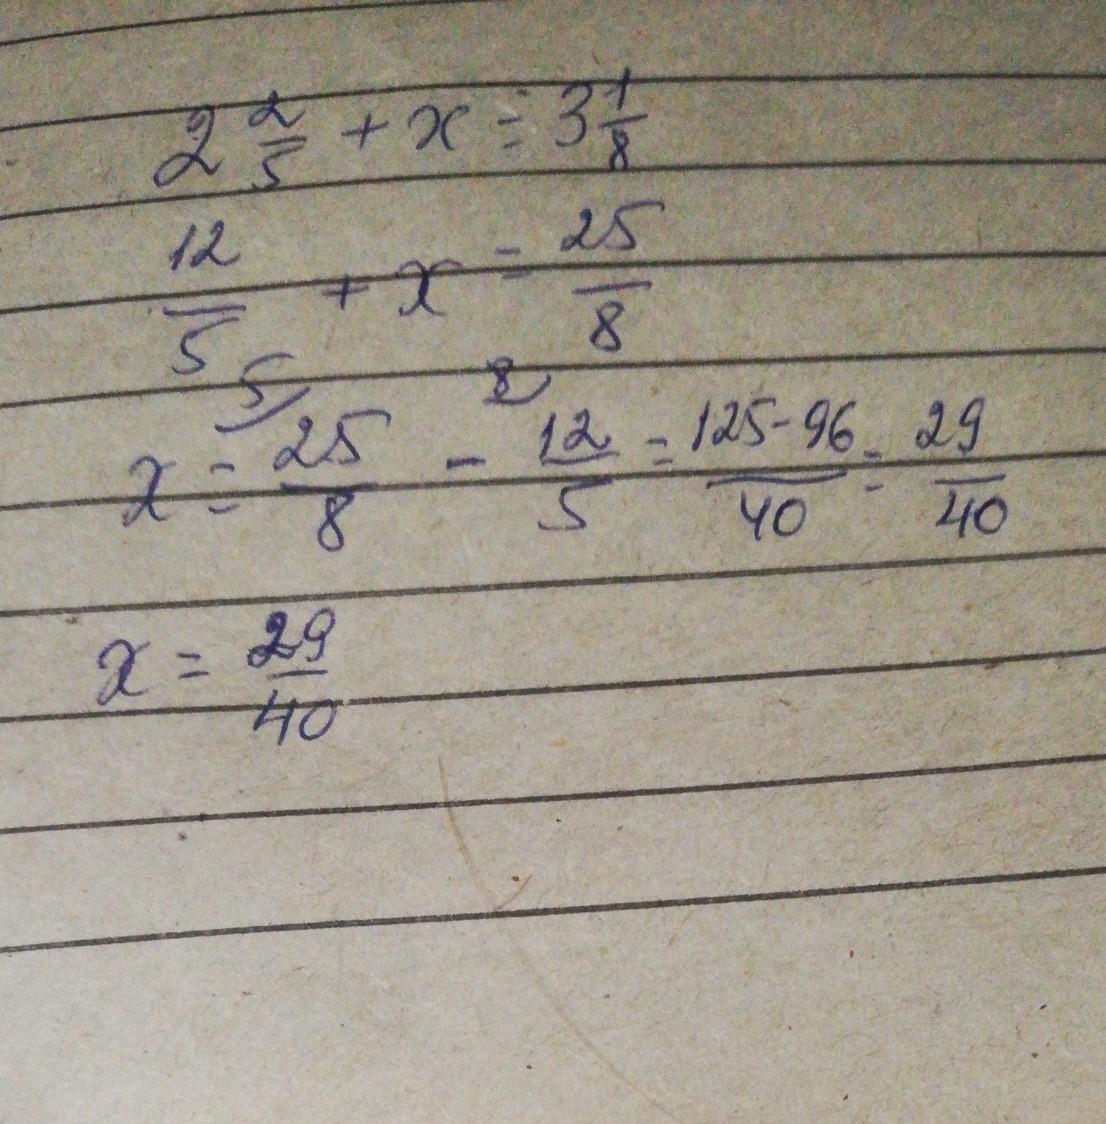 2 2/5 + x = 3 1/8
12/5 + x = 25/8
x = 5/ 25/8 - 8/ 12/5 = 125-96/40 = 29/40
x = 29/40